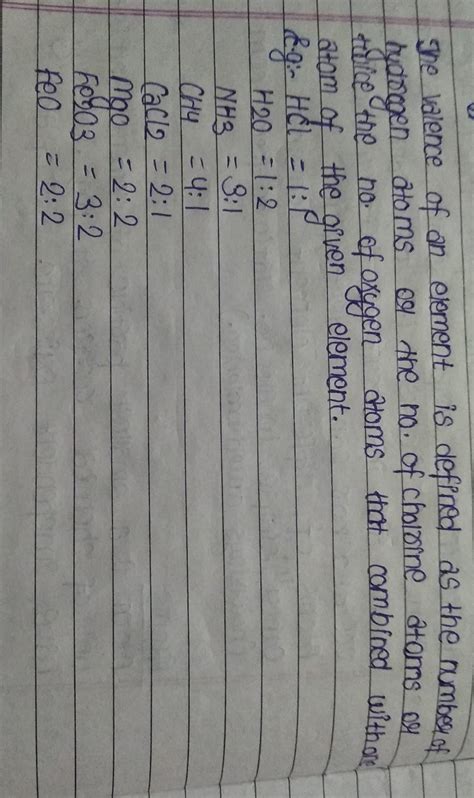 The valence of an element is defined as the number of
hydrogen atoms or the no. of chloirine atoms or
twice the no. of oxygen atoms that combined with one
atom of the given element.
E.g:- HCl = 1:1
H2O = 1:2
NH3 = 3:1
CH4 = 4:1
CaCl2 = 2:1
MgO = 2:2
Fe2O3 = 3:2
FeO = 2:2